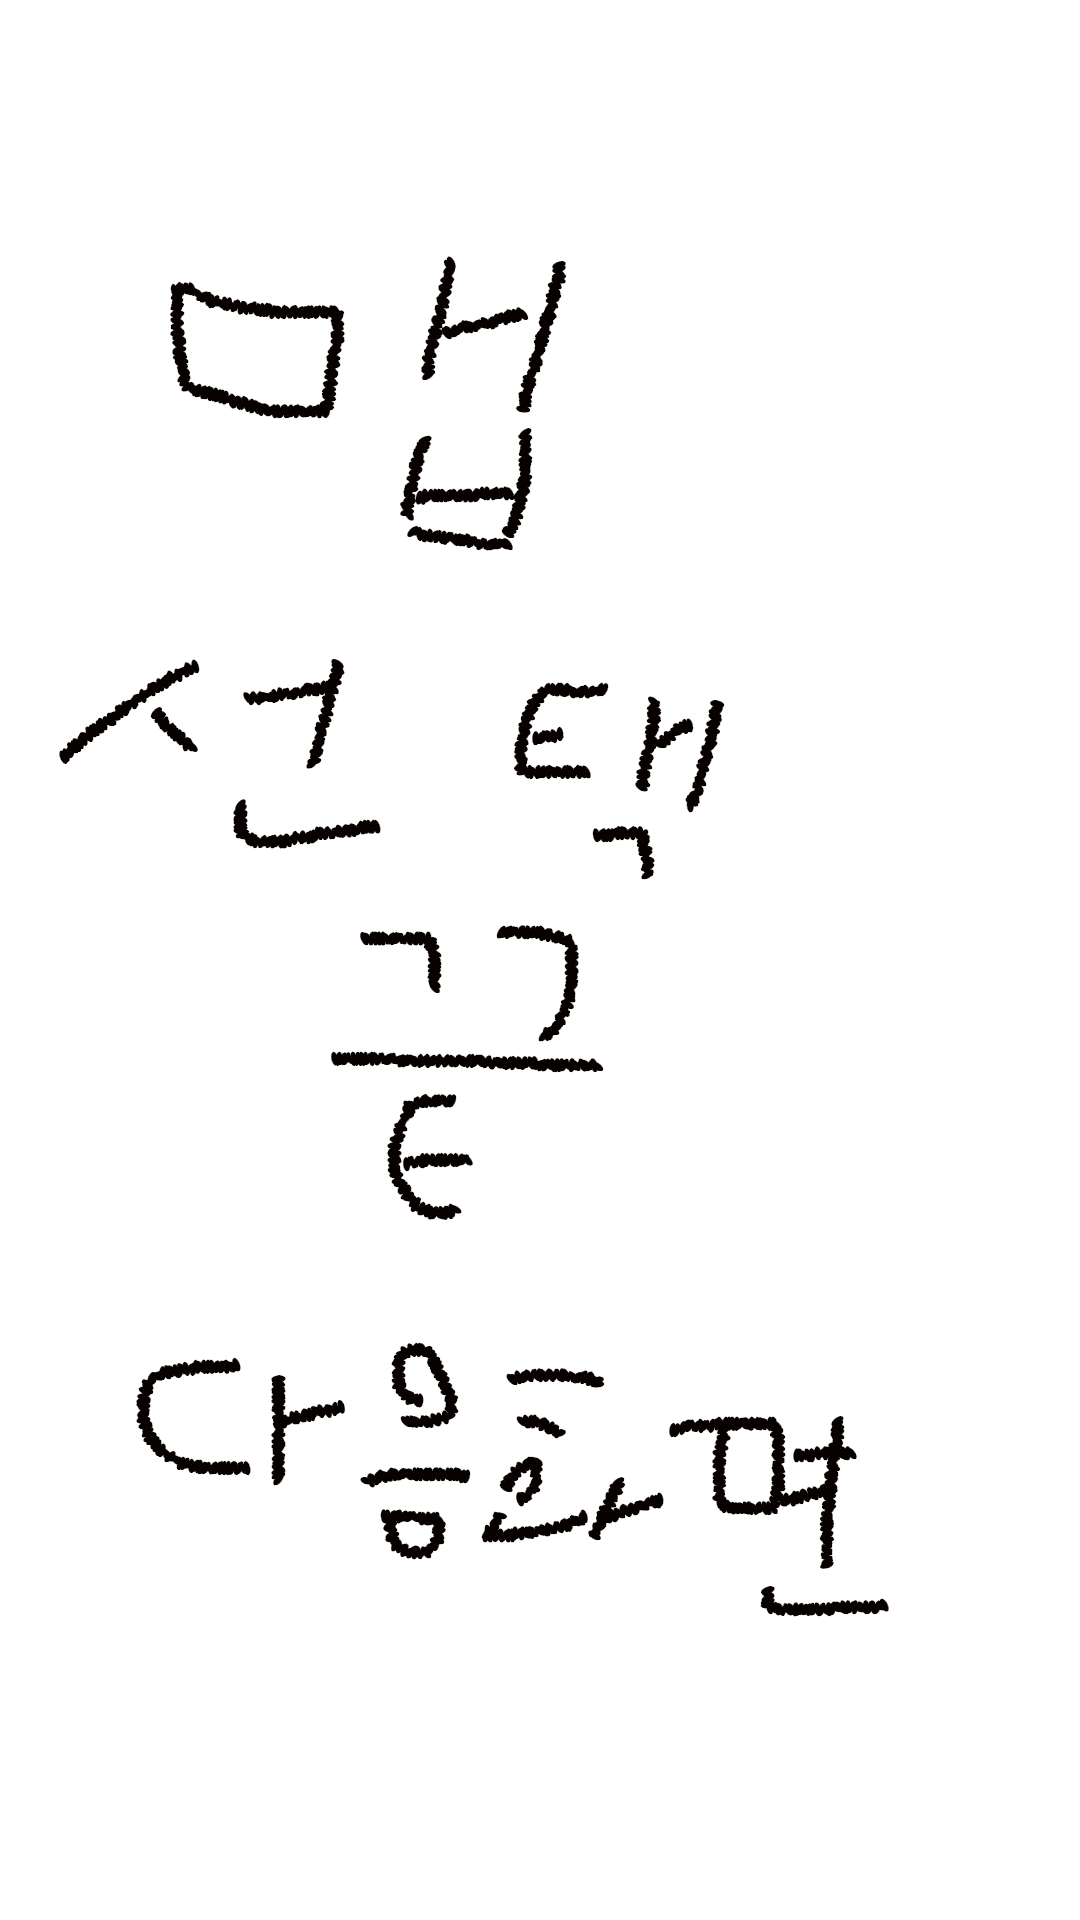 맵
선택
끝
다음화면